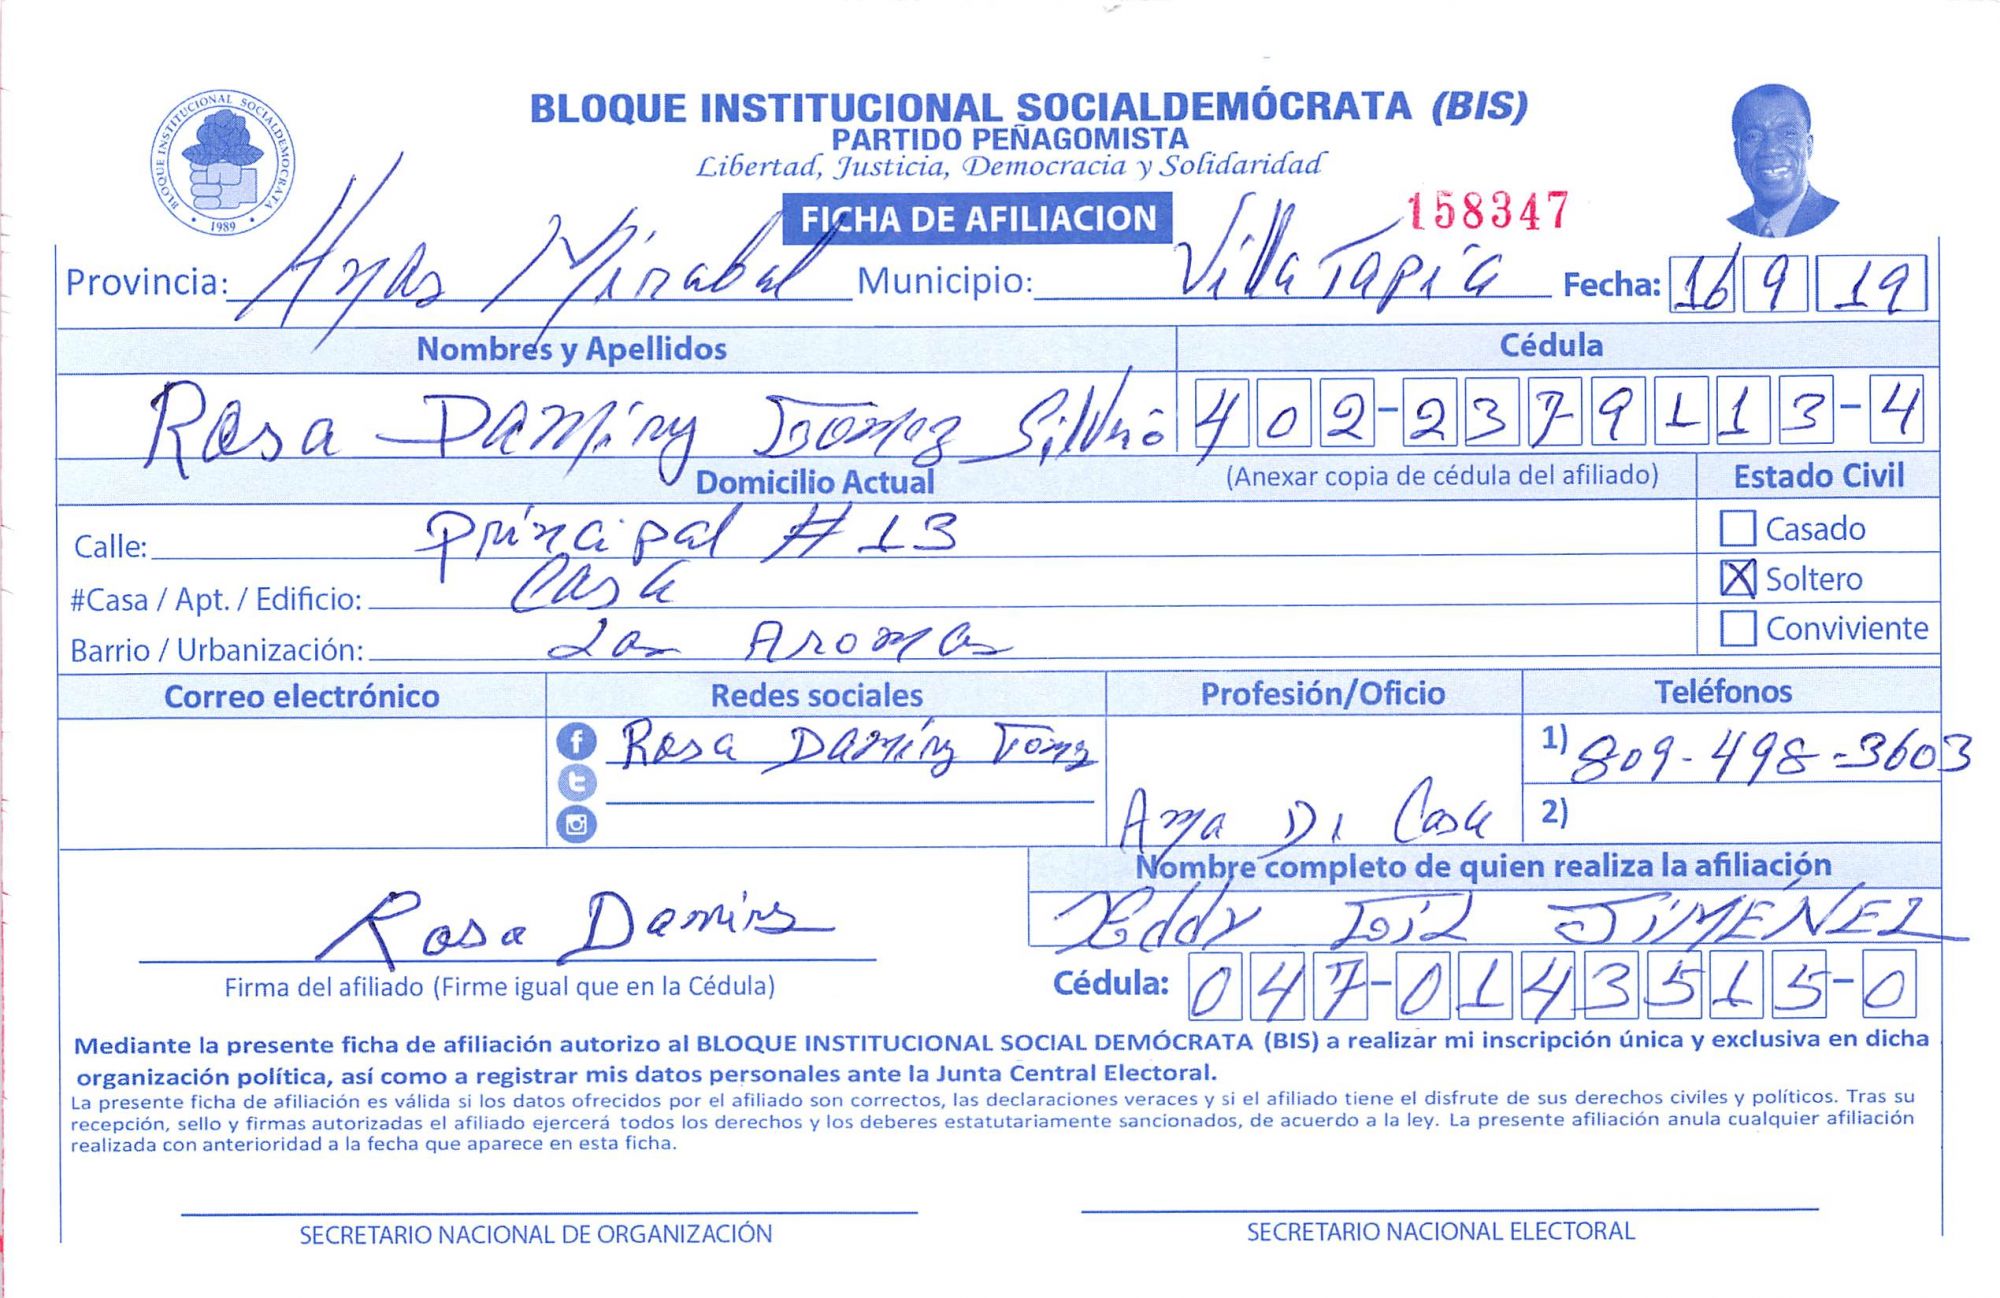 BLOQUE INSTITUCIONAL SOCIALDEMÓCRATA
1989
BLOQUE INSTITUCIONAL SOCIALDEMÓCRATA (BIS)
PARTIDO PEÑAGOMISTA
Libertad, Justicia, Democracia y Solidaridad
FICHA DE AFILIACION
158347
Provincia: Hnas Mirabal Municipio: Villa Tapia Fecha: 16 9 19
Nombres y Apellidos Cédula
Rosa Daminy Gomez Silverio 402-2379113-4
Domicilio Actual (Anexar copia de cédula del afiliado) Estado Civil
Calle: Principal # 13 Casado
#Casa / Apt. / Edificio: Casa X Soltero
Barrio / Urbanización: Las Aromas Conviviente
Correo electrónico Redes sociales Profesión/Oficio Teléfonos
Rosa Daminy 1) 809-498-3603
Ama De Casa 2)
Nombre completo de quien realiza la afiliación
Rosa Eddy JIMÉNEZ
Firma del afiliado (Firme igual que en la Cédula) Cédula: 047-0143515-0
Mediante la presente ficha de afiliación autorizo al BLOQUE INSTITUCIONAL SOCIAL DEMÓCRATA (BIS) a realizar mi inscripción única y exclusiva en dicha
organización política, así como a registrar mis datos personales ante la Junta Central Electoral.
La presente ficha de afiliación es válida si los datos ofrecidos por el afiliado son correctos, las declaraciones veraces y si el afiliado tiene el disfrute de sus derechos civiles y políticos. Tras su
recepción, sello y firmas autorizadas el afiliado ejercerá todos los derechos y los deberes estatutariamente sancionados, de acuerdo a la ley. La presente afiliación anula cualquier afiliación
realizada con anterioridad a la fecha que aparece en esta ficha.
SECRETARIO NACIONAL DE ORGANIZACIÓN SECRETARIO NACIONAL ELECTORAL